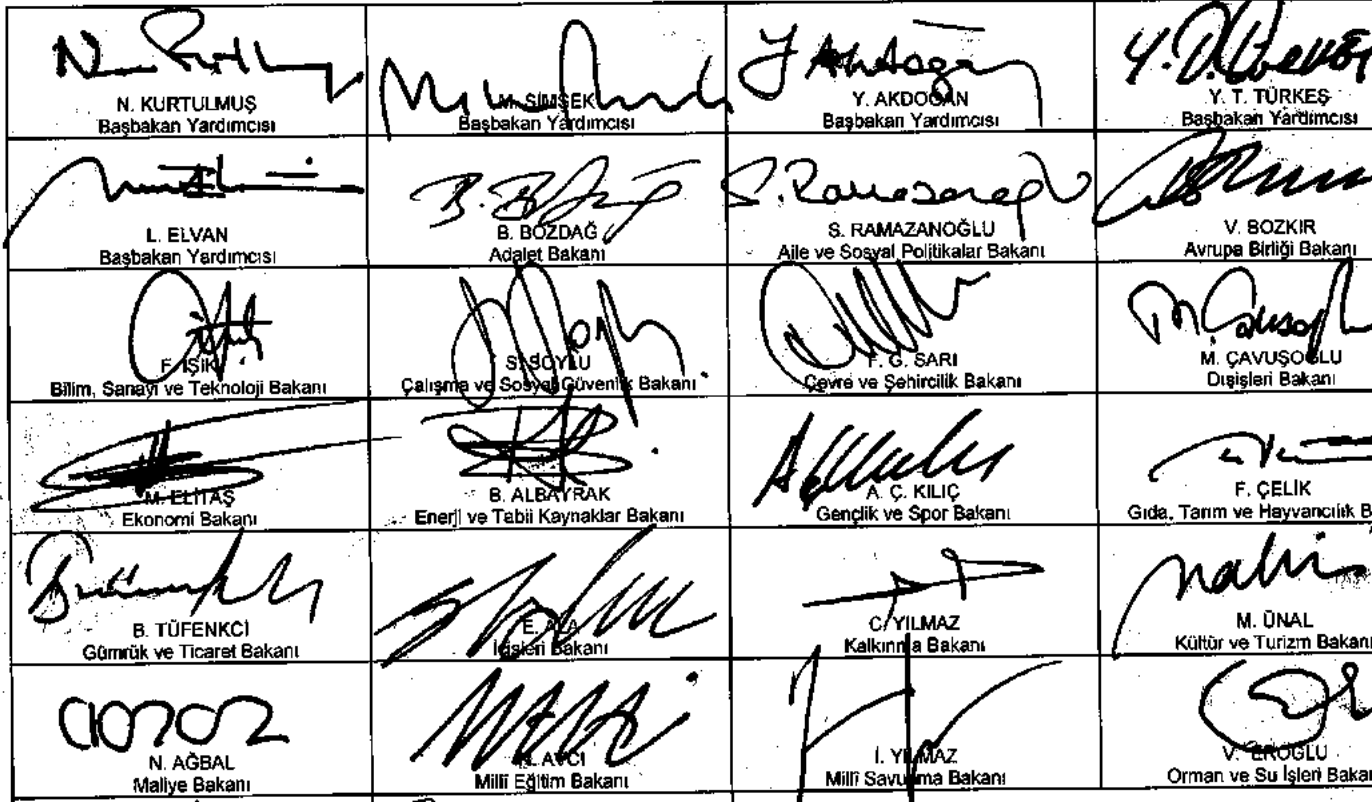 N. KURTULMUŞ
Başbakan Yardımcısı
M. ŞİMŞEK
Başbakan Yardımcısı
Y. AKDOĞAN
Başbakan Yardımcısı
Y. T. TÜRKEŞ
Başbakan Yardımcısı
L. ELVAN
Başbakan Yardımcısı
B. BOZDAĞ
Adalet Bakanı
S. RAMAZANOĞLU
Aile ve Sosyal Politikalar Bakanı
V. BOZKIR
Avrupa Birliği Bakanı
F. IŞIK
Bilim, Sanayi ve Teknoloji Bakanı
S. SOYLU
Çalışma ve Sosyal Güvenlik Bakanı
F. G. SARI
Çevre ve Şehircilik Bakanı
M. ÇAVUŞOĞLU
Dışişleri Bakanı
M. ELİTAŞ
Ekonomi Bakanı
B. ALBAYRAK
Enerji ve Tabii Kaynaklar Bakanı
A. Ç. KILIÇ
Gençlik ve Spor Bakanı
F. ÇELİK
Gıda, Tarım ve Hayvancılık B
B. TÜFENKCİ
Gümrük ve Ticaret Bakanı
E. ALA
İçişleri Bakanı
C. YILMAZ
Kalkınma Bakanı
M. ÜNAL
Kültür ve Turizm Bakanı
N. AĞBAL
Maliye Bakanı
N. AVCI
Millî Eğitim Bakanı
İ. YILMAZ
Millî Savunma Bakanı
V. EROĞLU
Orman ve Su İşleri Bakan